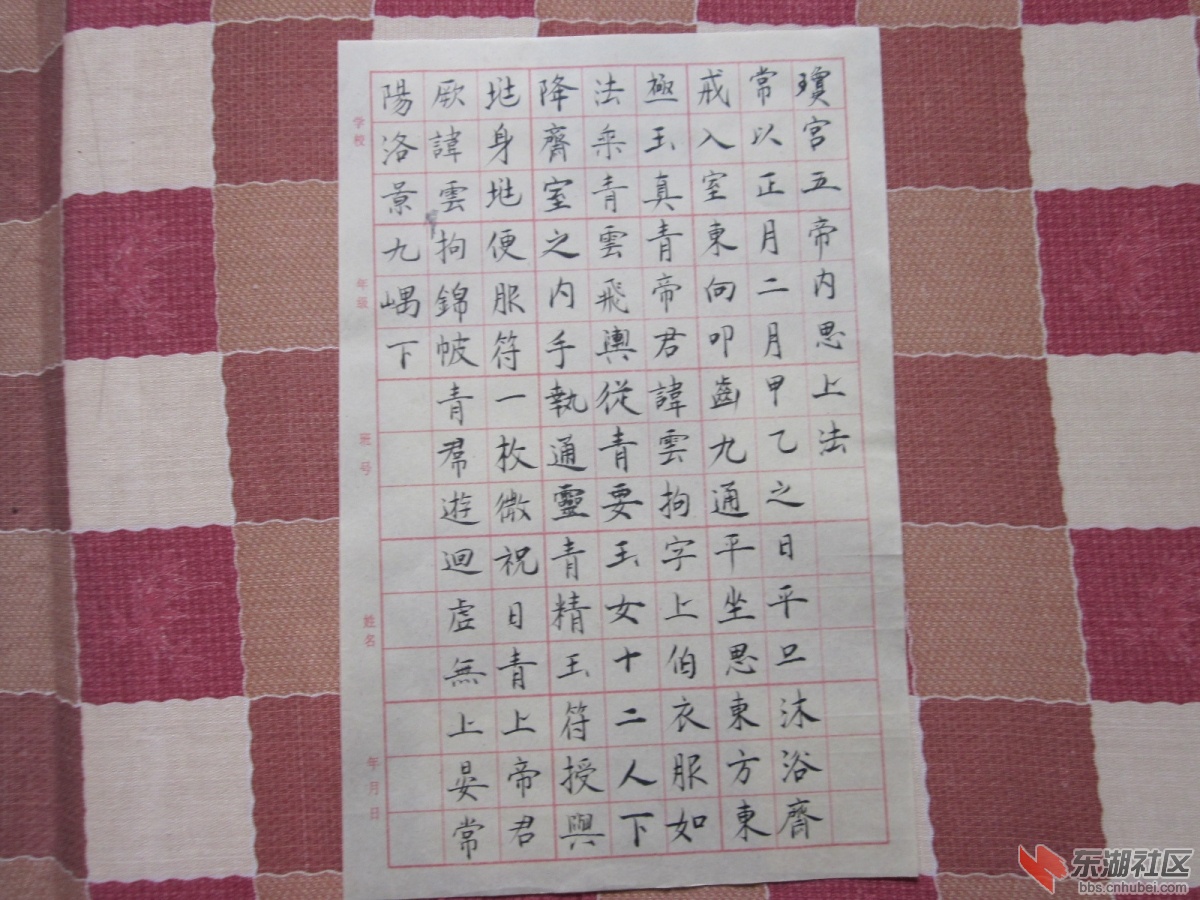 瓊宮五帝内思上法
常以正月二月甲乙之日平旦沐浴齊
戒入室東向叩齒九通平坐思東方東
極玉真青帝君諱雲拘字上伯衣服如
法乘青雲飛輿從青要玉女十二人下
降齋室之内手執通靈青精玉符授與
兆身兆便服符一枚微祝曰青上帝君
厥諱雲拘錦帔青帬遊迴虚無上晏常
陽洛景九嵎下
学校
年级
班号
姓名
年月日
东湖社区
bbs.cnhubei.com